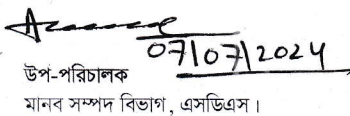 07/07/2024
উপ-পরিচালক
মানব সম্পদ বিভাগ, এসডিএস।